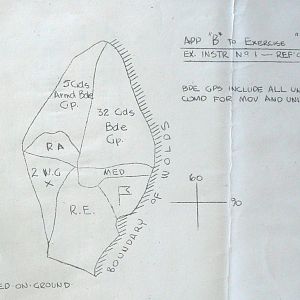 APP "B" TO EXERCISE "
EX. INSTR Nº 1 — REF'
5 Gds
Armd Bde
Gp.
32 Gds
Bde
Gp.
BDE GPS INCLUDE ALL UN
COMD FOR MOV AND
RA
2 W.G
X
MED
R.E.
BOUNDARY OF WOLDS
60
90
ED ON GROUND